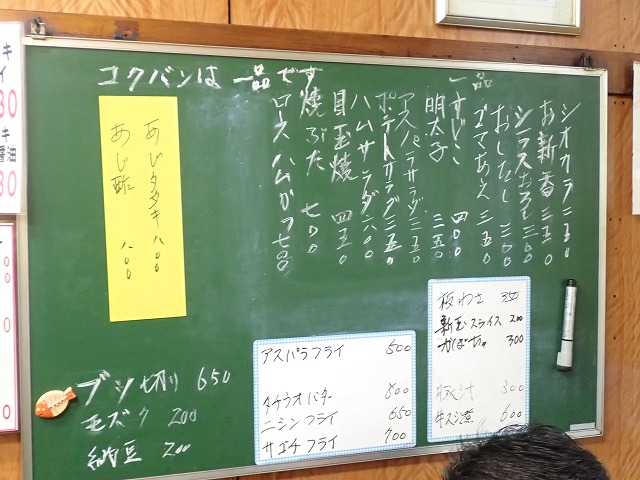 コクバンは 一品です
一品
シオカラ 二五〇
お新香 三五〇
シラスおろし 三五〇
おしたし 三〇〇
ゴマあえ 三五〇
すじこ 四〇〇
明太子 三五〇
アスパラサラダ 三五〇
ポテトサラダ 三五〇
ハムサラダ 六〇〇
目玉焼 四五〇
焼ぶた 七〇〇
ロースハムカツ 七五〇
あじタタキ 八〇〇
あじ酢 八〇〇
板わさ 350
新玉スライス 200
かぼちゃ 300
豚汁 300
牛スジ煮 600
アスパラフライ 500
タケウオバター 800
ニシンフライ 650
サゴチフライ 700
ブツ切り 650
モズク 200
納豆 200
キ
イ
30
キ
醤油
30